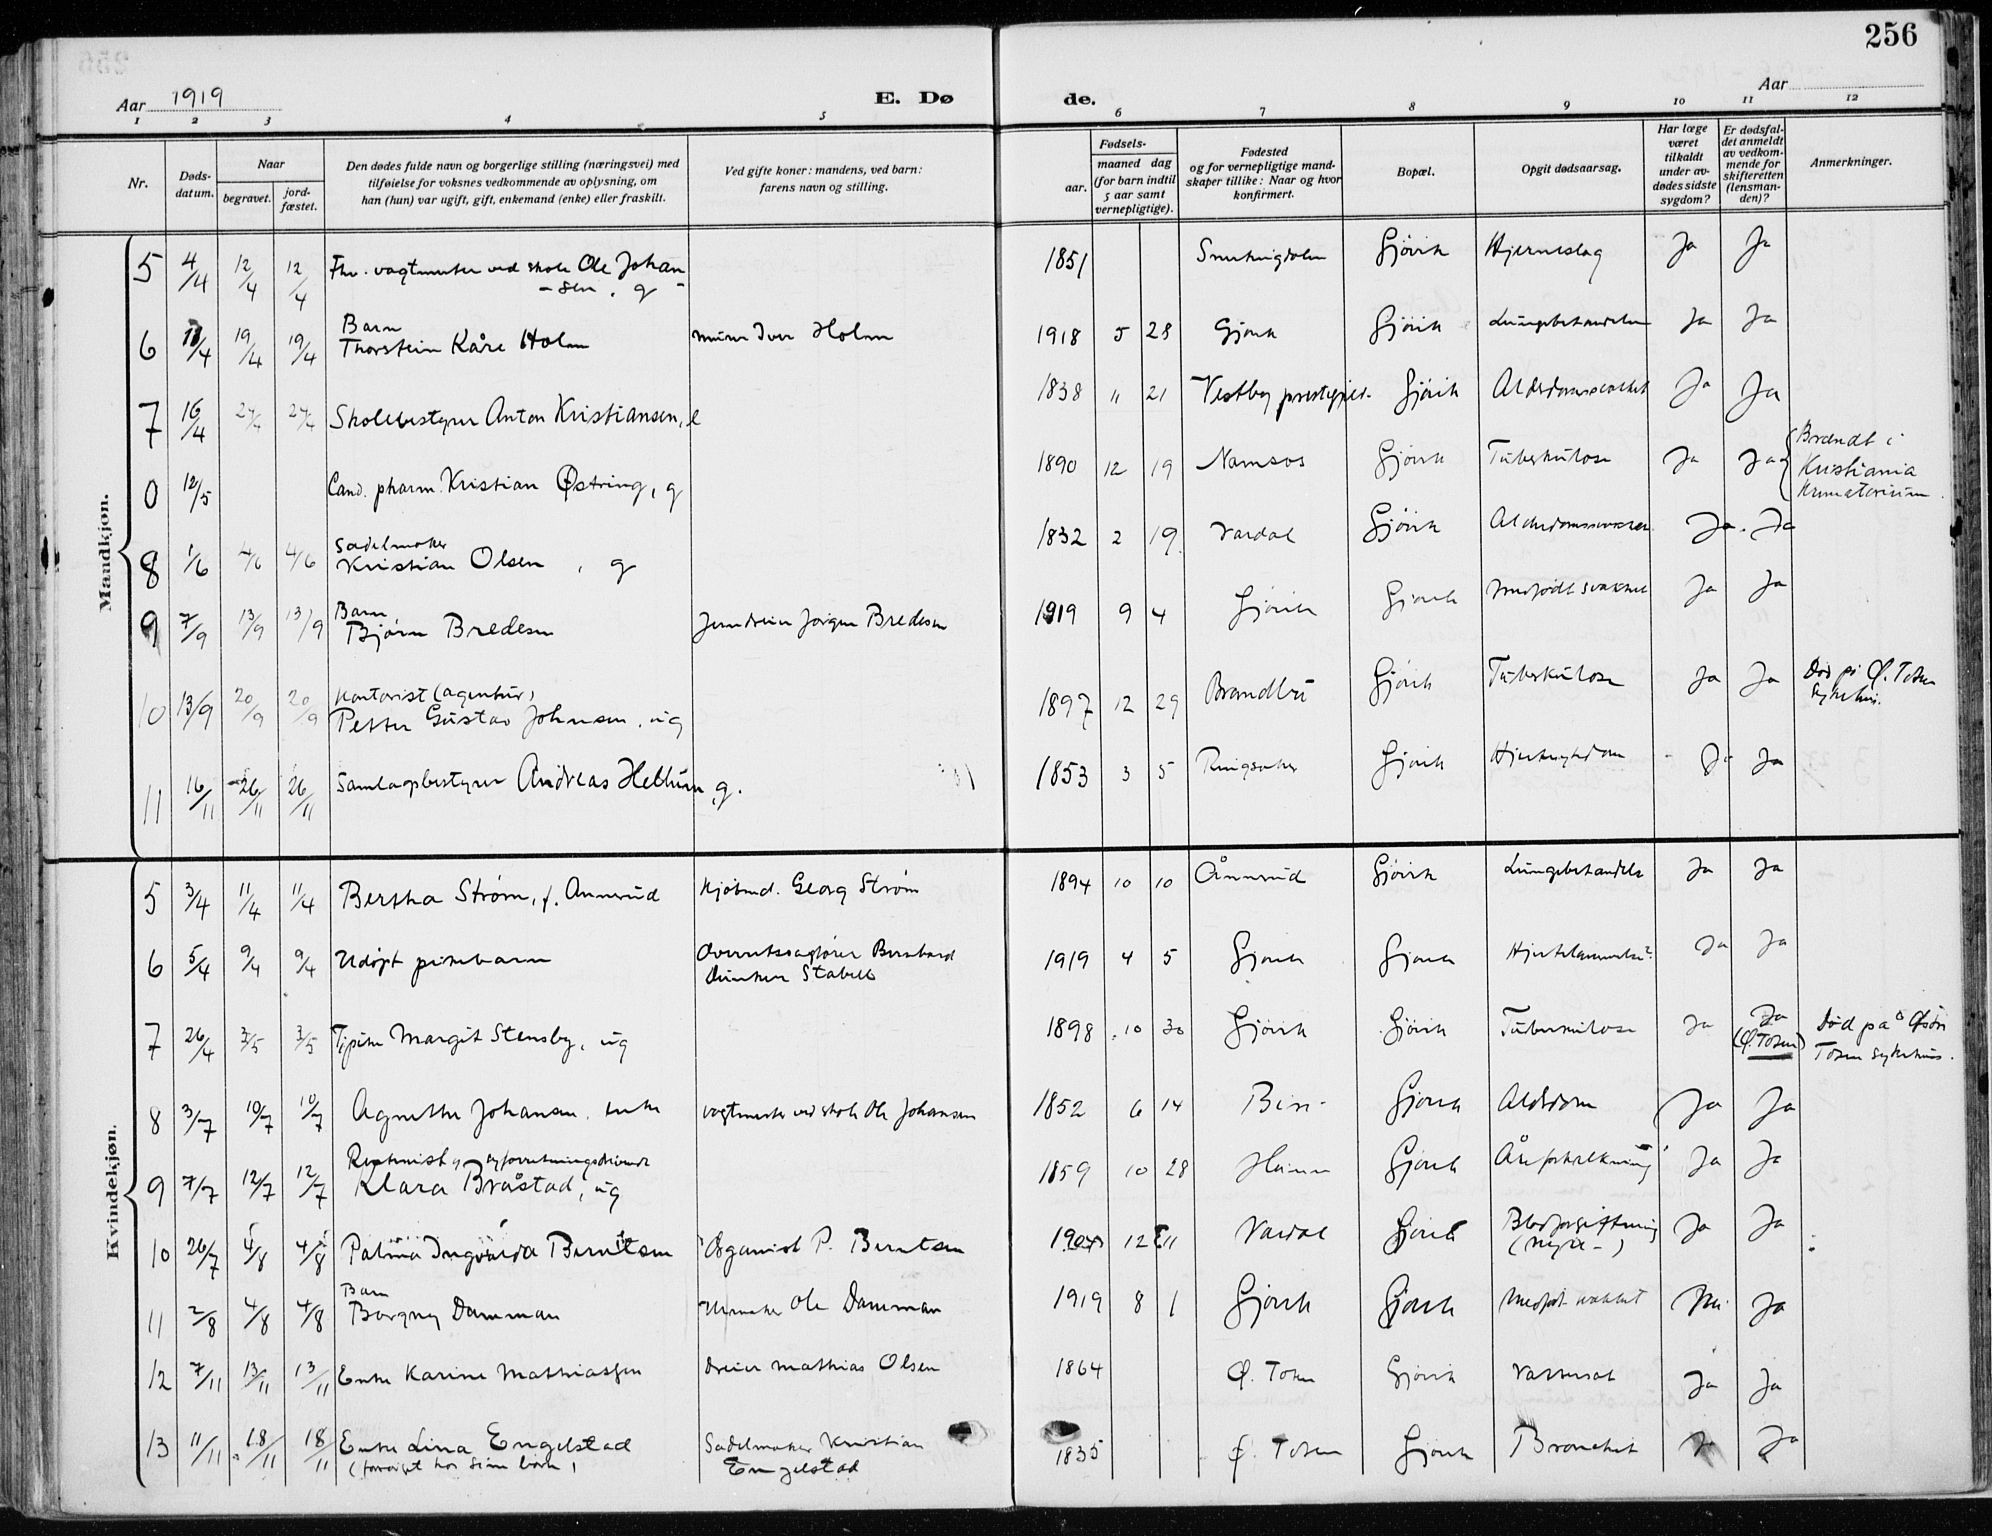 256
Aar 1919
E. Dø
de.
Aar
1 2 3 4 5 6 7 8 9 10 11 12
Nr.
Døds-
datum.
Naar
begravet.
jord-
fæstet.
Den dødes fulde navn og borgerlige stilling (næringsvei) med
tilføielse for voksnes vedkommende av oplysning, om
han (hun) var ugift, gift, enkemand (enke) eller fraskilt.
Ved gifte koner: mandens, ved barn:
farens navn og stilling.
Fødsels-
aar.
maaned dag
(for barn indtil
5 aar samt
vernepligtige).
Fødested
og for vernepligtige mand-
skaper tillike: Naar og hvor
konfirmert.
Bopæl.
Opgit dødsaarsag.
Har læge
været
tilkaldt
under av-
dødes sidste
sygdom?
Er dødsfal-
det anmeldt
av vedkom-
mende for
skifteretten
(lensman-
den)?
Anmerkninger.
Mandkjøn.
5 4/4 12/4 12/4 Fhv. vagtmester ved skole Ole Johan- 1851 Gjövik Hjerneslag Ja Ja
-sen, g
Barn
6 19/4 19/4 Thorstein Kåre Holm murer Iver Holm 1918 5 28 Gjövik Gjövik Lungebetændelse Ja Ja
7 16/4 24/4 24/4 Skolebestyrer Anton Kristiansen, e 1838 11 21 Vestby prestegjeld Gjövik Alderdomssvakhet Ja Ja
0 12/5 Cand. pharm. Kristian Østring, g 1890 12 19 Namsos Gjövik Tuberkulose Ja Ja Brændt i
Kristiania
Krematorium.
Sadelmaker
8 1/6 4/6 4/6 Kristian Olsen, g 1832 2 19 Vardal Gjövik Ja Ja
Barn
9 7/9 13/9 13/9 Bjørn Bredesen Jerndreier Jørgen Bredesen 1919 9 4 Gjövik Gjövik Medfødt svakhet Ja Ja
Kontorist (agentur)
10 13/9 20/9 20/9 Petter Gustav Johnsen, ug 1897 12 29 Brandbu Gjövik Tuberkulose Ja Ja Död på Ø. Toten
Sykehus.
11 16/11 26/11 26/11 Samlagsbestyrer Andreas Hellum, g. 1853 3 5 Ringsaker Gjövik Hjertesykdom Ja Ja
Kvindekjøn.
5 3/4 11/4 11/4 Bertha Strøm, f. Annerud Kjøbmd. Georg Strøm 1894 10 10 Gjövik Lungebetændelse Ja Ja
6 5/4 9/4 9/4 Udöpt pikebarn Overretssagfører Bernhard
Dunker Stabell 1919 4 5 Gjövik Gjövik Hjertelammelse? Ja Ja
7 26/4 3/5 3/5 Margit Stensby, ug 1898 10 30 Gjövik Gjövik Tuberkulose Ja Ja
(Ø. Toten) Död på Østre
Toten sykehus.
8 3/7 10/7 10/7 Agnethe Johansen, enke vagtmester ved skole Ole Johansen 1852 6 14 Biri Gjövik Alderdom Ja Ja
9 7/7 12/7 12/7 Klara Bråstad, ug 1859 10 28 Gjövik Åreforkalkning Ja Ja
10 26/7 4/8 4/8 Palma Ingvarda Berntsen Organist P. Berntsen 12 11 Vardal Gjövik Blodforgiftning
(Nyre-) Ja Ja
Barn
11 2/8 4/8 4/8 Borgny Damman Urmaker Ole Damman 1919 8 1 Gjövik Gjövik Medfødt svakhet Ja
12 7/11 13/11 13/11 Enke Karine Mathiassen Dreier Mathias Olsen 1864 Ø. Toten Gjövik Vattersot Ja Ja
13 11/11 18/11 18/11 Enke Lina Engelstad Sadelmaker Kristian
Engelstad 1835 Ø. Toten Gjövik Bronchit Ja Ja
(forsörget hos sine barn)